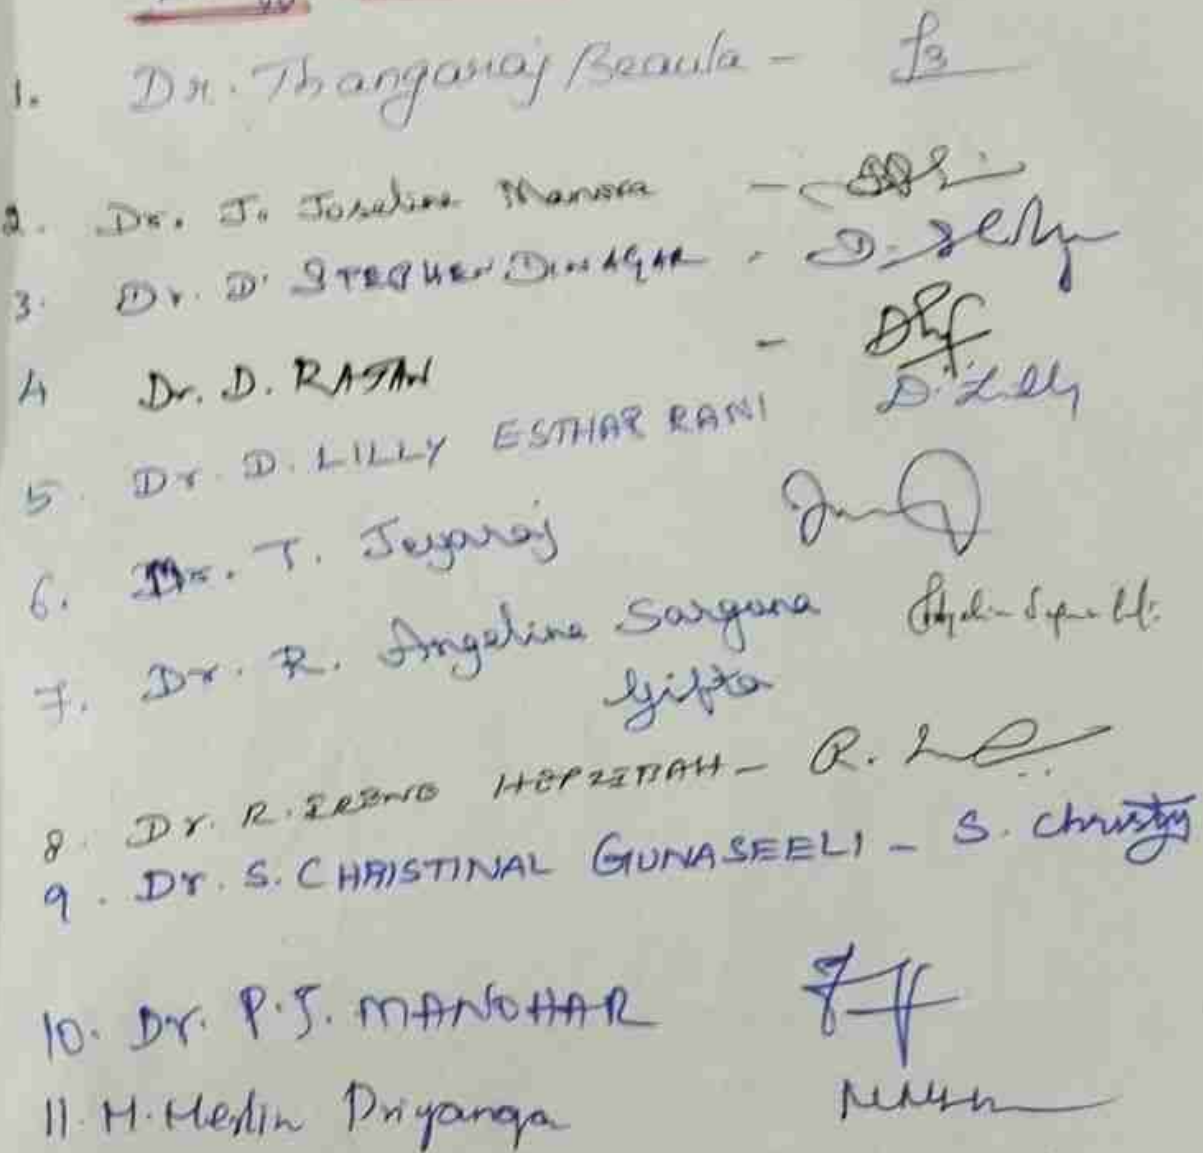 1. Dr. Thangaraj Beaula -
2. Dr. J. Joseline Manora -
3. Dr. D. STEPHEN DINAGAR - D.
4 Dr. D. RAJAN -
5. Dr. D. LILLY ESTHAR RANI D. Lilly
6. Dr. T. Jeyaraj
7. Dr. R. Angeline Sarguna
Gifta
8. Dr. R. IRENE HEPZIBAH - R.
9. Dr. S. CHRISTINAL GUNASEELI - S. Christy
10. Dr. P.J. MANOHAR
11. H. Merlin Priyanga